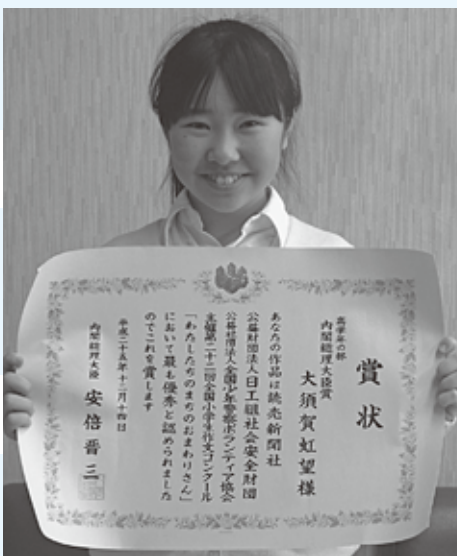 賞状
高学年の部
内閣総理大臣賞
大須賀虹望様
あなたの作品は読売新聞社
公益財団法人日工組社会安全財団
公益財団法人全国少年警察ボランティア協会
主催第二十二回全国小学生作文コンクール
「わたしたちのまちのおまわりさん」
において最も優秀と認められました
のでこれを賞します
平成二十五年十二月十四日
内閣総理大臣 安倍晋三